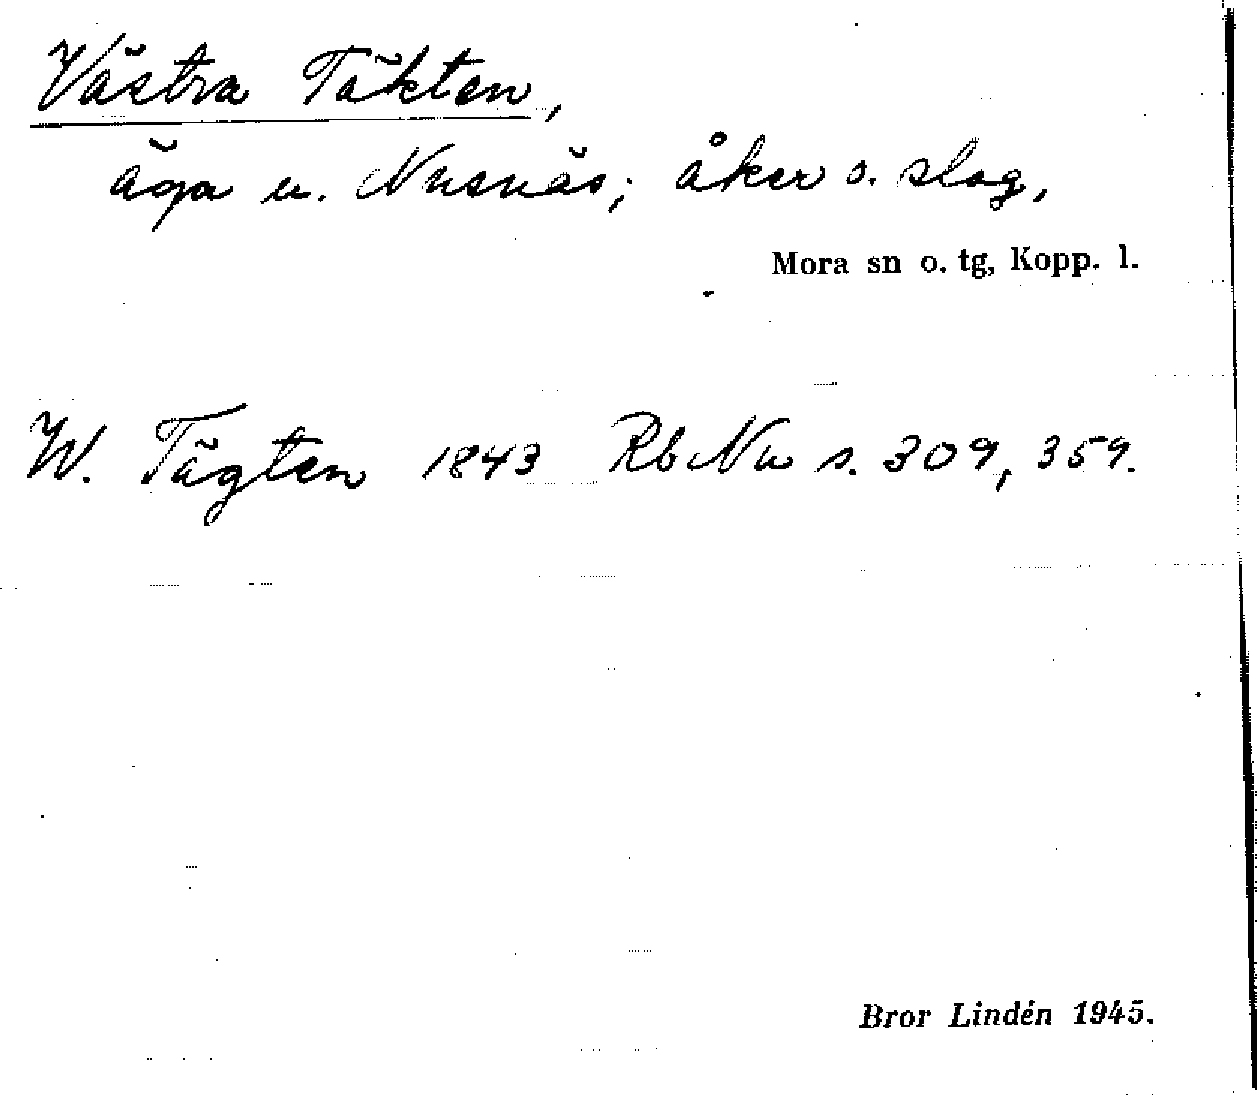 Västra Täkten,
äga u. Nusnäs; åker o. slog,
Mora sn o. tg, Kopp. l.
W. Tägten 1843 Rb Nu s. 309, 359.
Bror Lindén 1945.